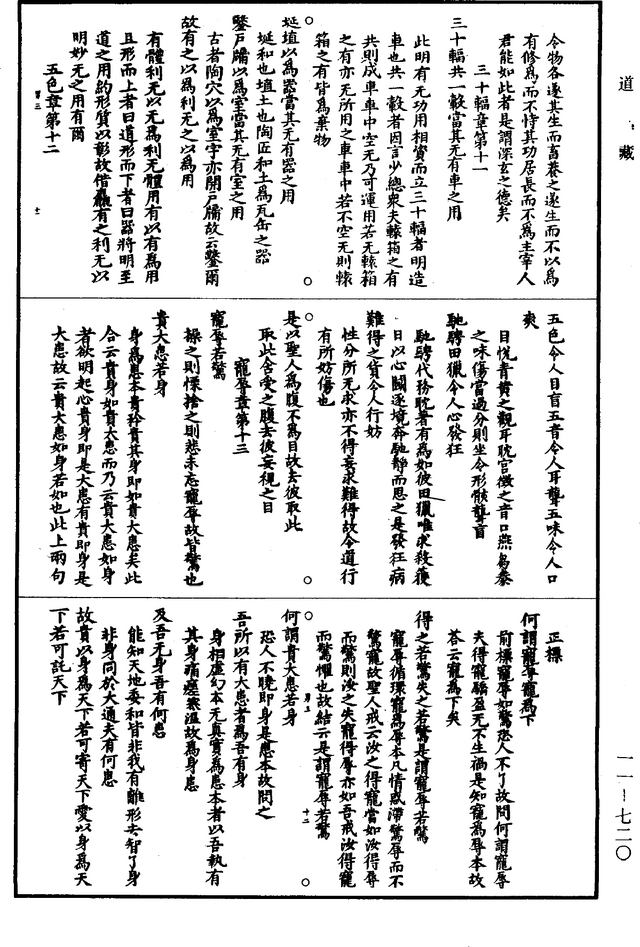 道藏
令物各遂其生而畜養之遂生而不以爲
有修爲而不恃其功居長而不爲主宰人
君能如此者是謂深玄之德矣
三十輻章第十一
三十輻共一轂當其无有車之用
此明有无功用相資而立三十輻者明造
車也共一轂者因言少總衆夫轅箱之有
共則成車車中空无乃可運用若无轅箱
之有亦无所用之車車中若不空无則轅
箱之有皆爲棄物
埏埴以爲器當其无有器之用
埏和也埴土也陶匠和土爲瓦缶之器
鑿戶牖以爲室當其无有室之用
古者陶穴以爲室宇亦開戶牖故云鑿爾
故有之以爲利无之以爲用
有體利无以无爲利无體用有以有爲用
且形而上者曰道形而下者曰器將明至
道之用約形質以彰故借麤有之利无以
明妙无之用有爾
五色章第十二
五色令人目盲五音令人耳聾五味令人口
爽
目悅青黃之觀耳耽宮徵之音口燕芻豢
之味傷當過分則坐令形骸聾盲
馳騁田獵令人心發狂
馳騁代務耽著有爲如彼田獵唯求殺獲
日以心鬭逐境奔馳靜而思之是發狂病
難得之貨令人行妨
性分所无求亦不得妄求難得故令道行
有所妨傷也
是以聖人爲腹不爲目故去彼取此
取此含受之腹去彼妄視之目
寵辱章第十三
寵辱若驚
操之則慄捨之則悲未忘寵辱故皆驚也
貴大患若身
身爲患本貴矜貴其身即如貴大患矣此
合云貴身如貴大患而乃云貴大患如身
者欲明起心貴身即是大患有貴即身是
大患故云貴大患如身若如也此上兩句
正標
何謂寵辱寵爲下
前標寵辱如驚恐人不了故問何謂寵辱
夫得寵驕盈无不生禍是知寵爲辱本故
答云寵爲下矣
得之若驚失之若驚是謂寵辱若驚
寵辱循環寵爲辱本凡情惑滯驚辱而不
驚寵故聖人戒云汝之得寵當如汝得辱
而驚則汝之失寵得辱亦如吾戒汝得寵
而驚懼也故結云是謂寵辱若驚
何謂貴大患若身
恐人不曉即身是患本故問之
吾所以有大患者爲吾有身
身相虛幻本无真實爲患本者以吾執有
其身痛癢寒溫故爲身患
及吾无身吾有何患
能知天地委和皆非我有離形去智了身
非身同於大通夫有何患
故貴以身爲天下若可寄天下愛以身爲天
下若可託天下
一一-七二〇